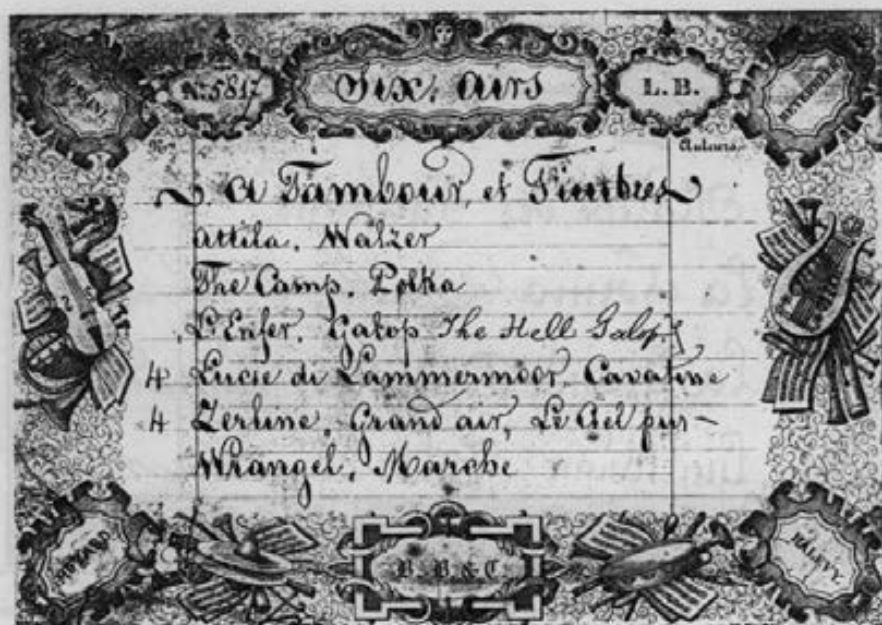 No. 5817
Six. airs
L.B.
Auteurs
A Tambour, et Timbres
Attila. Walzer
The Camp. Polka
L'Enfer. Galop The Hell Galop.
4 Lucie di Lammermoor. Cavatine
4 Zerline. Grand air, Le Ciel pur
Wrangel. Marche
B.B&C.
HALÉVY.